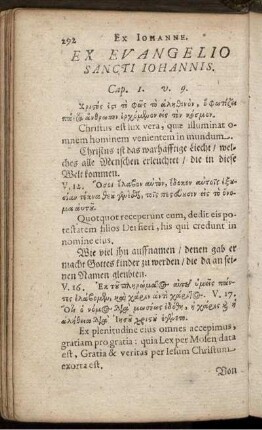 292 EX IOHANNE.
EX EVANGELIO
SANCTI IOHANNIS.
Cap. 1. v. 9.
Χριστὸς ἐστι τὸ φῶς τὸ ἀληθινὸν, ὃ φωτίζει
πάντα ἄνθρωπον ἐρχόμενον εἰς τὸν κόσμον.
Christus est lux vera, quæ illuminat o-
mnem hominem venientem in mundum.
Christus ist das warhafftige Liecht / wel-
ches alle Menschen erleuchtet / die in diese
Welt kommen.
V. 12. Ὅσοι ἔλαβον αὐτὸν, ἔδωκεν αὐτοῖς ἐξου-
σίαν τέκνα Θεοῦ γενέσθαι, τοῖς πιστεύουσιν εἰς τὸ ὄνο-
μα αὐτοῦ.
Quotquot receperunt eum, dedit eis po-
testatem filios Dei fieri, his qui credunt in
nomine eius.
Wie viel ihn auffnamen / denen gab er
macht Gottes kinder zu werden / die da an sei-
nen Namen gleubten.
V. 16. Ἐκ τοῦ πληρώματος αὐτοῦ ἡμεῖς πάν-
τες ἐλάβομεν, καὶ χάριν ἀντὶ χάριτος. V. 17.
Ὅτι ὁ νόμος διὰ μωσέως ἐδόθη, ἡ χάρις καὶ ἡ
ἀλήθεια διὰ Ἰησοῦ χριστοῦ ἐγένετο.
Ex plenitudine eius omnes accepimus,
gratiam pro gratia: quia Lex per Mosen data
est, Gratia & veritas per Iesum Christum
exorta est.
Von